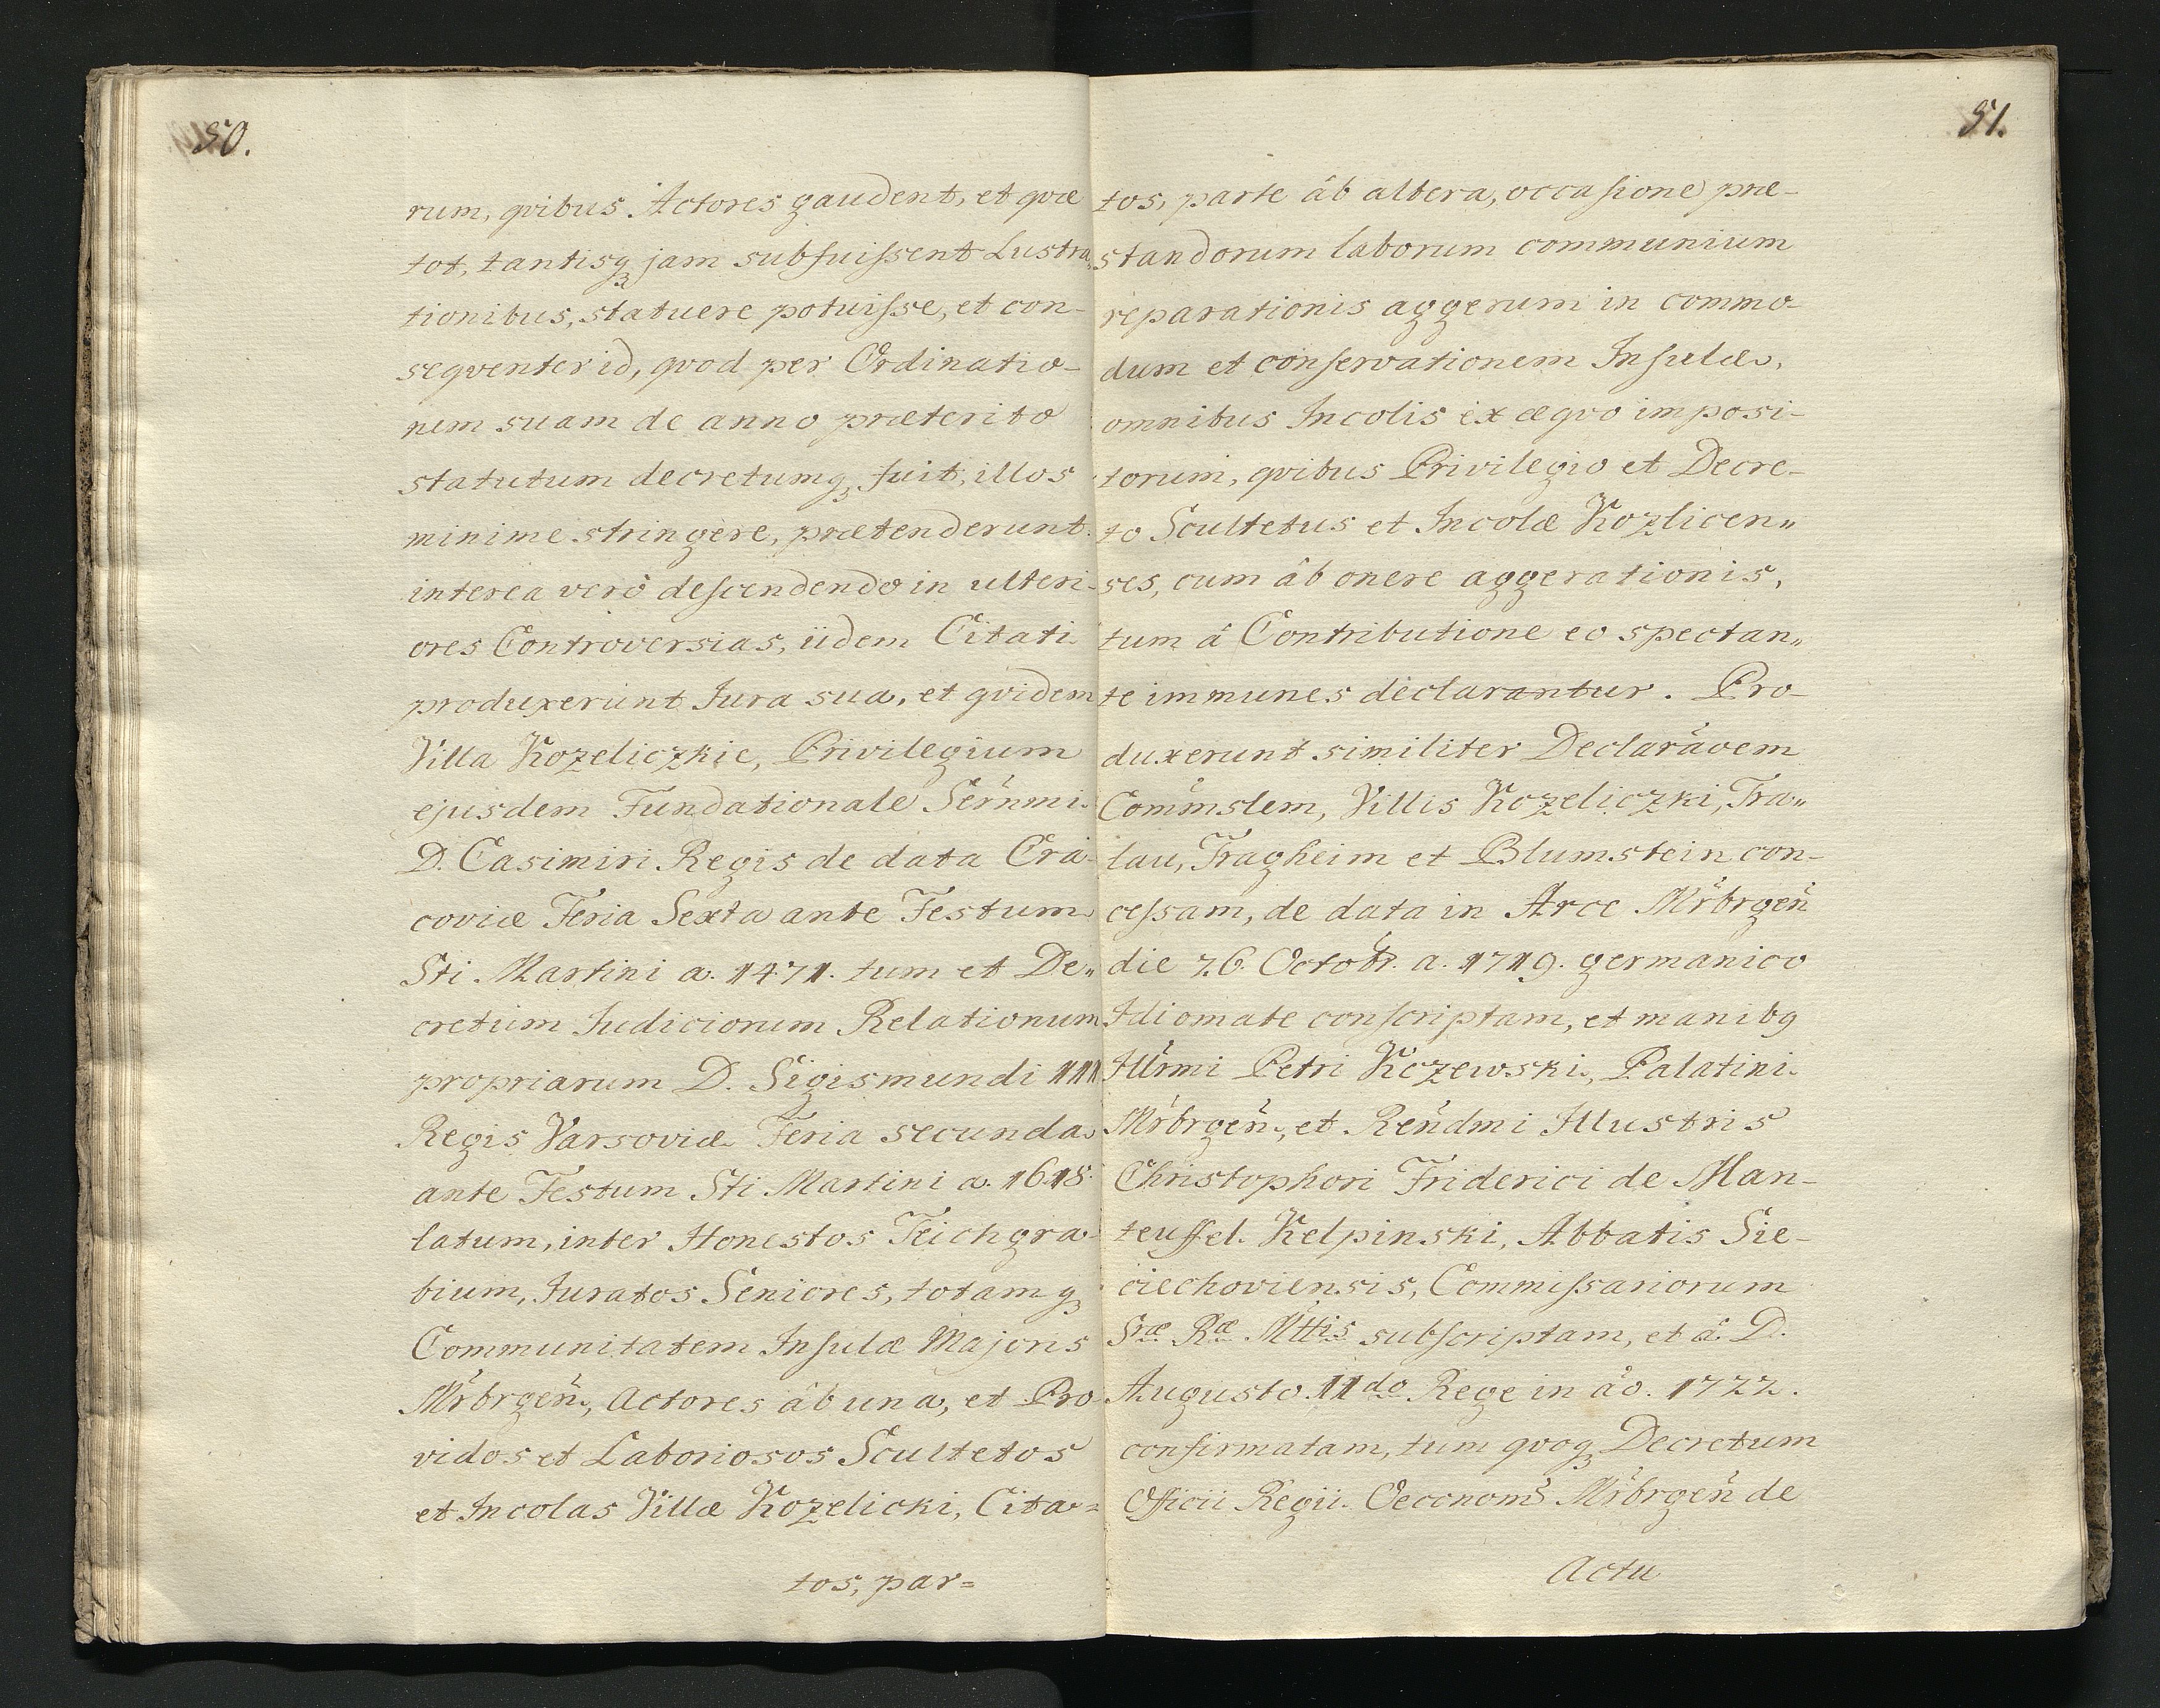 50.
rum, qvibus Actores gaudent, et qvæ
tot, tantisq; jam subfuiſsent Lustra„
tionibus, statuere potuiſse, et con-
seqventer id, qvod per Ordinatio-
nem suam de anno præterito
statutum decretumq; fuit, illos
minime stringere, prætenderunt.
interea verò deſcendendo in ulteri-
ores Controversias, iidem Citati
produxerunt Jura sua, et qvidem
Villa Kozeliczkie, Privilegium
ejusdem Fundationale Serńmi
D. Casimiri Regis de data Cra-
coviæ Feria Sexta ante Festum
Sti Martini a. 1471. tum et De„
cretum Judiciorum Relationum
propriarum D. Sigismundi III
Regis Varsoviæ Feria secunda
ante Festum Sti Martini a. 1618.
latum, inter Honestos Teichgra-
bium, Juratos Seniores, totamq;
Communitatem Inſulæ Majoris
Mŕbrgeń, Actores âb una, et Pro-
vidos et Laboriosos Scultetos
et Incolas Villæ Kozelicki, Cita-=
tos, par=
51.
tos, parte âb altera, occaſione præ-
standorum laborum communium
reparationis aggerum in commo-
dum et conſervationem Inſulæ,
omnibus Incolis ex æqvo imposi-
torum, qvibus Privilegio et Decre-
to Scultetus et Incolæ Kozlicen„
ses, cum âb onere aggerationis,
tum â Contributione eo spectan„
te immunes declarantur. Pro-
duxerunt similiter Declaraóem
Com̃mslem, Villis Kozeliczki, Tra„
lau, Tragheim et Blumstein con-
ceſsam, de data in Arce Mŕbrgeń
die 26. Octobr. a. 1719. germanico
Idiomate conſcriptam, et manibq
Illŕmi Petri Kczewski, Palatini
Mŕbrgeń, et Reńdmi Illustris
Christophori Friderici de Man-
teuffel. Kelpinski, Abbatis Sie-
ciechoviensis, Commiſsariorum
Sræ Ræ Mttis subſcriptam, et â D.
Augusto IIdo Rege in åo. 1722.
confirmatam, tum qvoq; Decretum
Officii Regii Oeconoms Mŕbrgeń de
Actu